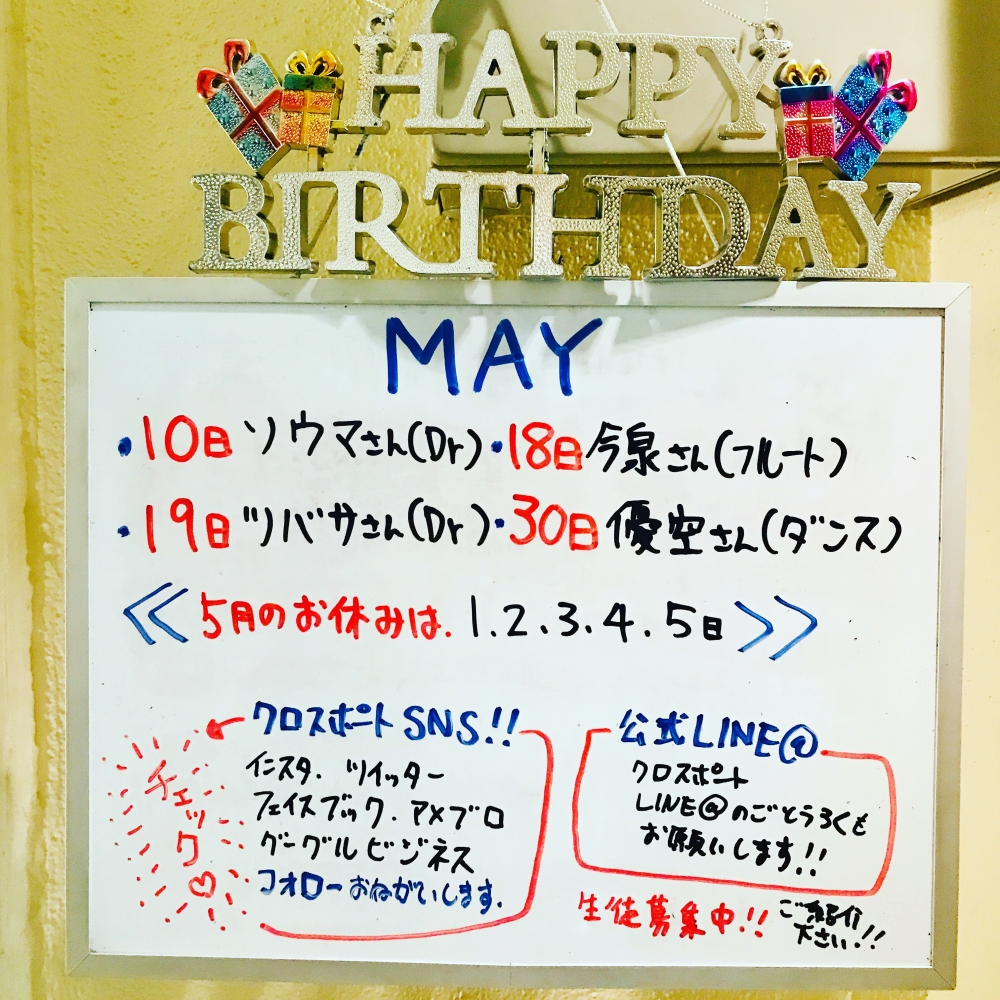 HAPPY
BIRTHDAY
MAY
・10日ソウマさん(Dr)・18日今泉さん(フルート)
・19日ツバサさん(Dr)・30日優空さん(ダンス)
≪5月のお休みは.1.2.3.4.5日≫
クロスポートSNS!!
インスタ. ツイッター
フェイスブック.アメブロ
グーグルビジネス
フォローおねがいします.
チェック♡
公式LINE@
クロスポート
LINE@のごとうろくも
お願いします!!
生徒募集中!!
ご紹介
下さい!!